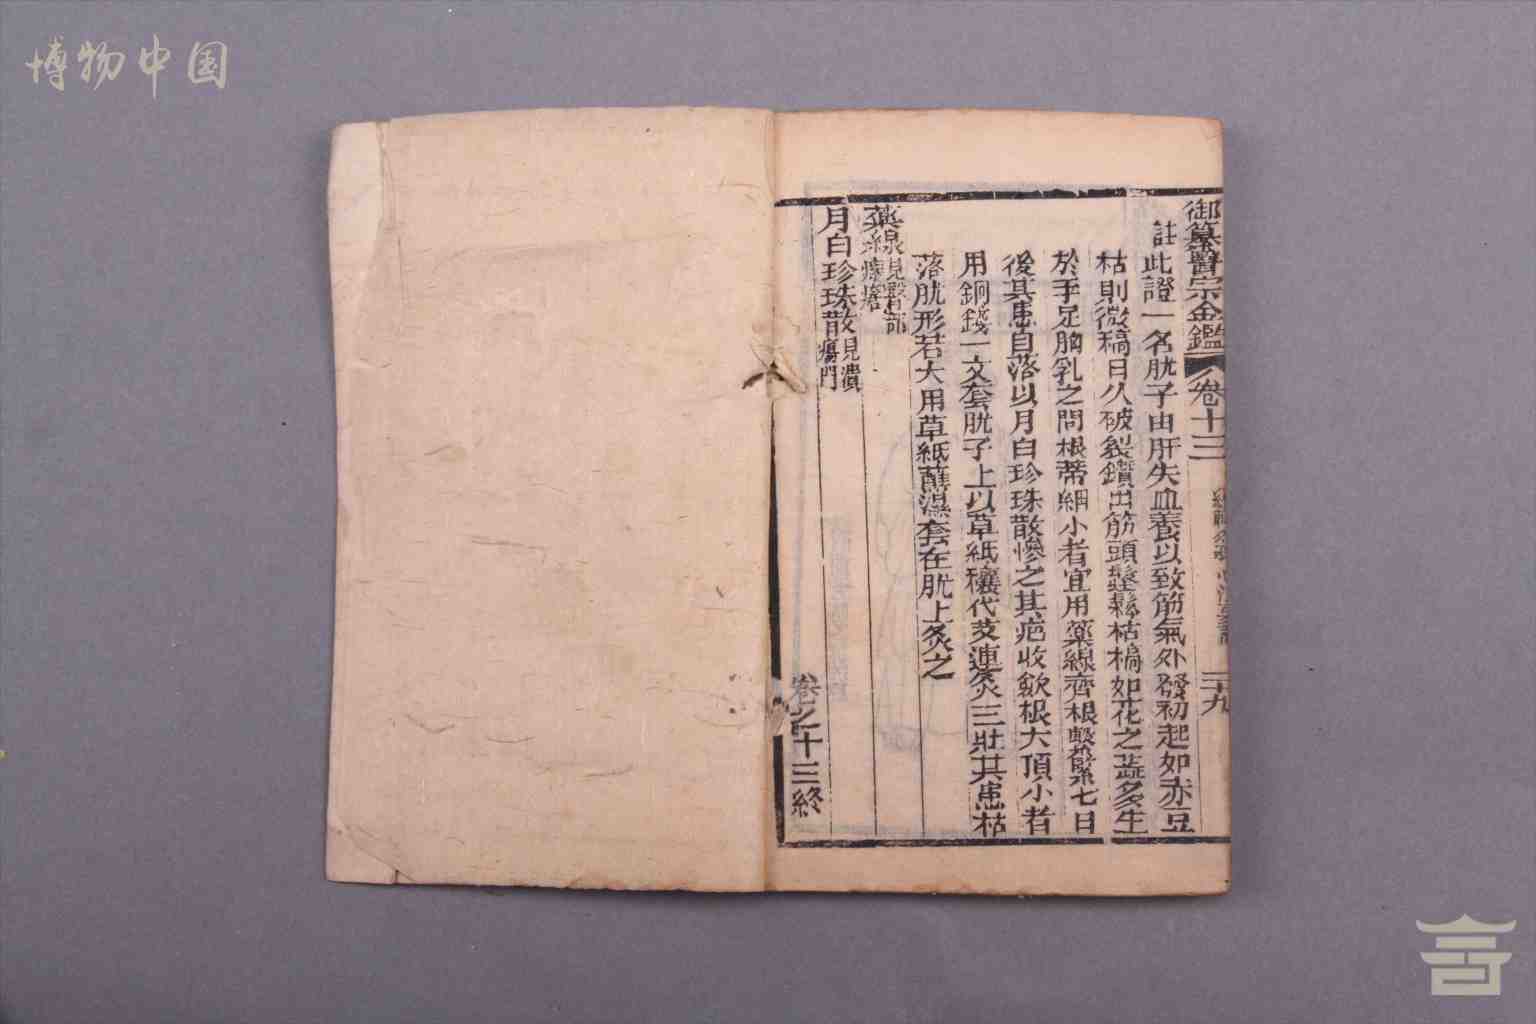 博物中国
御纂醫宗金鑑 卷十三 三十九
註此證一名肬子由肝失血養以致筋氣外發初起如赤豆
枯則微槁日久破裂鑽出筋頭鬆枯槁如花之蕋多生
於手足胸乳之間根蒂細小者宜用藥線齊根繫緊七日
後其患自落以月白珍珠散慘之其疤收歛根大頂小者
用銅錢一文套肬子上以草紙穰代艾連灸三壯其患枯
落肬形若大用草紙蘸濕套在肬上灸之
藥線見臀部瘰瘡
月白珍珠散見潰瘍門
卷之十三終